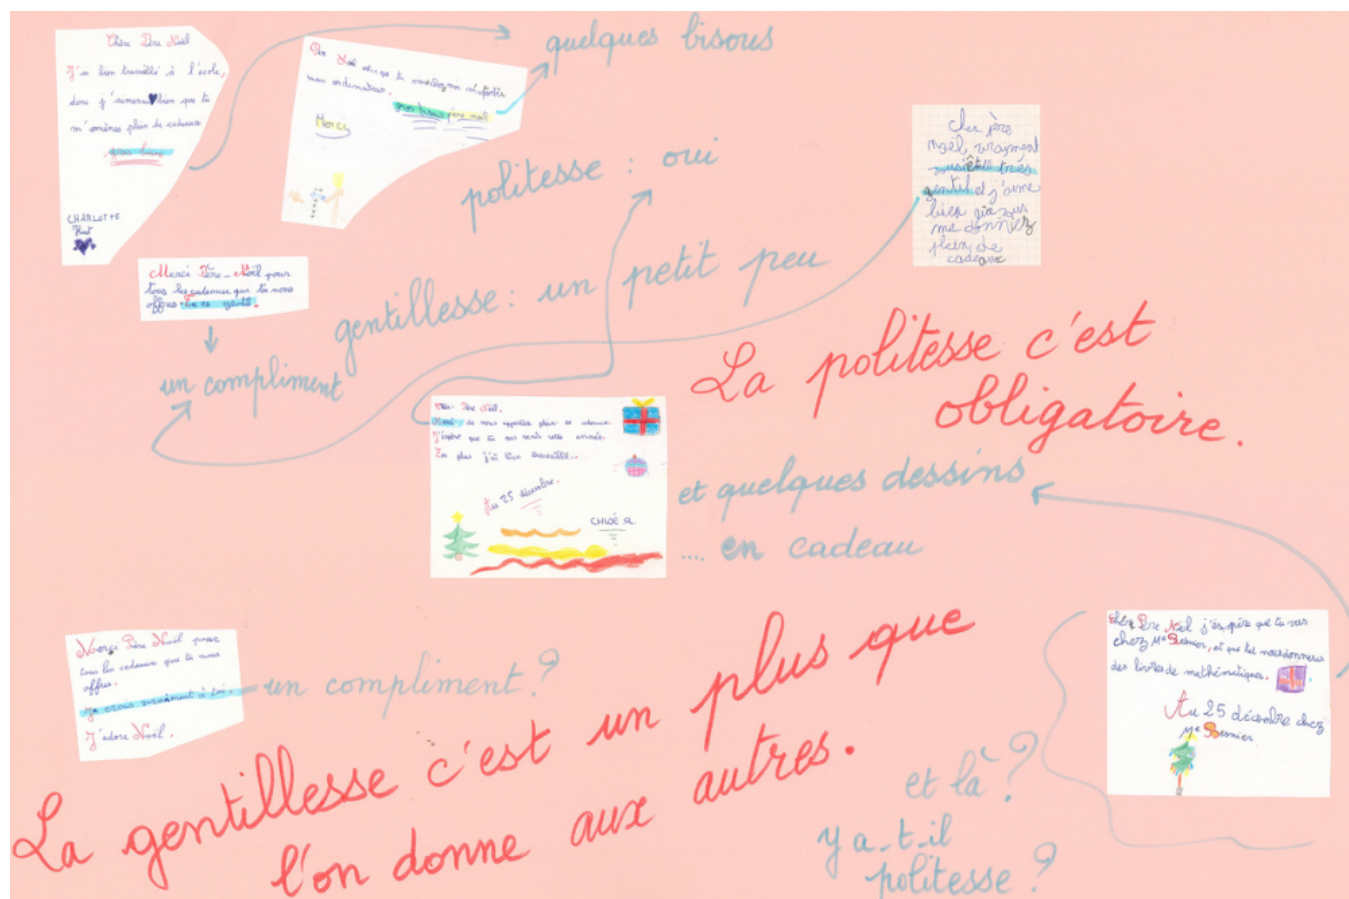 Chère Père Noël
J'ai bien travaillé à l'école,
donc j'aimerai bien que tu
m'amènes plein de cadeaux
gros bisous
CHARLOTTE
Père Noël est-ce que tu
mon ordinateur.
gros bisous père noel
Merci
quelques bisous
politesse : oui
cher père
noël vraiment
vous être très
gentil et j'aime
bien que vous
me donniez
plein de
cadeaux
Merci Père-Noël pour
tous les cadeaux que tu nous
offres tu es gentil.
un compliment
gentillesse : un petit peu
La politesse c'est
obligatoire.
Cher Père Noël,
Merci de nous apporter plein de cadeaux.
J'espère que tu vas venir cette année.
En plus j'ai bien travaillé...
Au 25 décembre.
CHLOÉ R.
et quelques dessins
.... en cadeau
Merci Père Noël pour
tous les cadeaux que tu nous
offres.
Je crois vraiment à toi.
J'adore Noël.
un compliment ?
La gentillesse c'est un plus que
l'on donne aux autres.
Cher Père Noël j'espère que tu vas
chez Me Besnier, et que tu nous donneras
des livres de mathématiques.
Au 25 décembre chez
Me Besnier
et là ?
y a-t-il
politesse ?